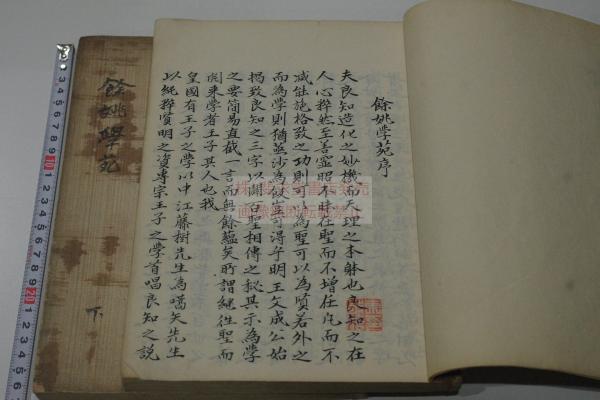 餘姚學苑
下
餘姚学苑序
夫良知造化之妙機而天理之本躰也良知之在
人心粹然至善靈昭不昧在聖而不增在凡而不
减能施格致之功則可以為聖可以為賢若外之
而為學則猶蒸沙為飯豈可得乎明王文成公始
揭致良知之三字以開百聖相傳之秘其示為學
之要簡易直截一言而無餘蘊矣所謂繼徃聖而
開来學者王子其人也我
皇國有王子之學以中江藤樹先生為嚆矢先生
以純粹賢明之資專宗王子之學首唱良知之説